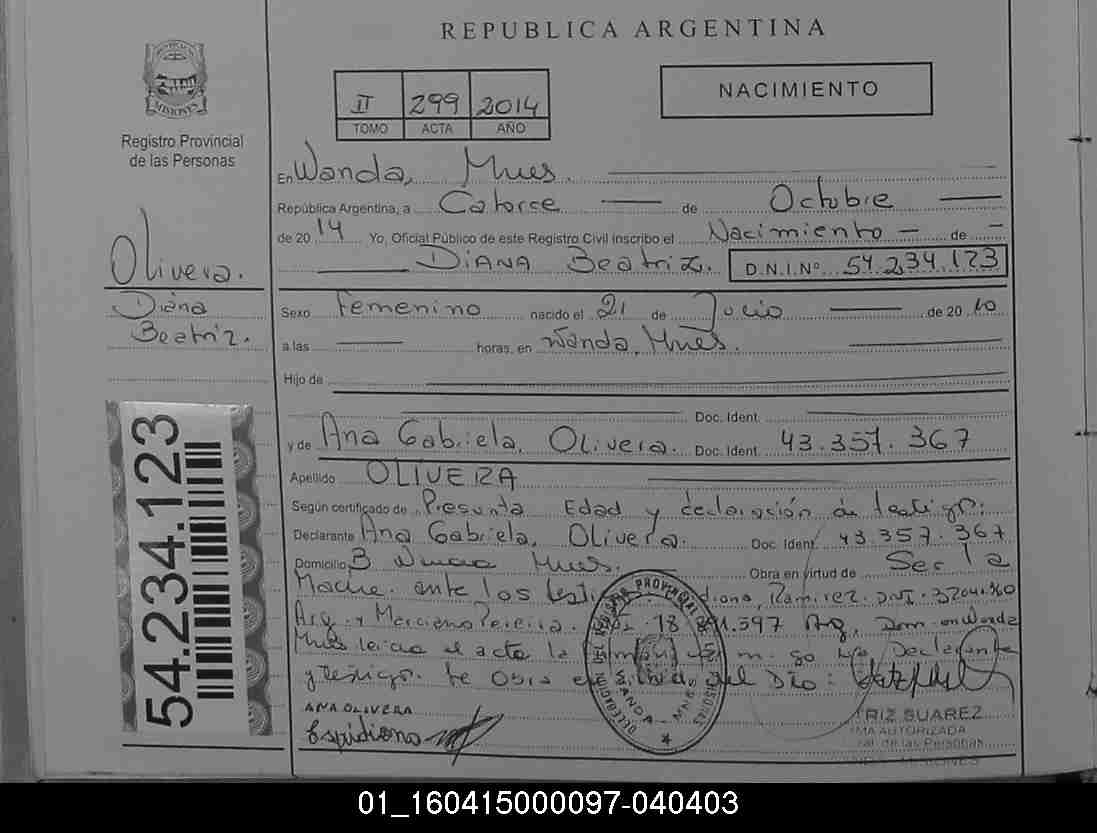 REPUBLICA ARGENTINA
MISIONES
Registro Provincial
de las Personas
II 299 2014
TOMO ACTA AÑO
NACIMIENTO
En Wanda, Mnes.
República Argentina, a Catorce de Octubre
de 2014 Yo, Oficial Público de este Registro Civil inscribo el Nacimiento de
DIANA Beatriz. D.N.I.Nº 54.234.123
Olivera.
Diana
Beatriz.
Sexo Femenino nacido el 21 de Julio de 2010
a las horas, en Wanda, Mnes.
Hijo de
Doc. Ident.
y de Ana Gabriela, Olivera. Doc. Ident. 43.357.367
Apellido OLIVERA
Según certificado de Presunta Edad y declaración de testigo.
Declarante Ana Gabriela, Olivera. Doc. Ident. 43.357.367
Domicilio B Mnes. Obra en virtud de Ser la
Madre. ante los Ramirez. DNI.
Arg. y Marciano Pereira. 18 .597 Arg. Dom. en Wanda
Mnes el acta la Declarante
y testigo.
54.234.123
DELEGACION DEL REGISTRO PROVINCIAL
WANDA - MNES
ANA OLIVERA
Espidiono
RIZ SUAREZ
MA AUTORIZADA
de las Personas
MISIONES
01_160415000097-040403